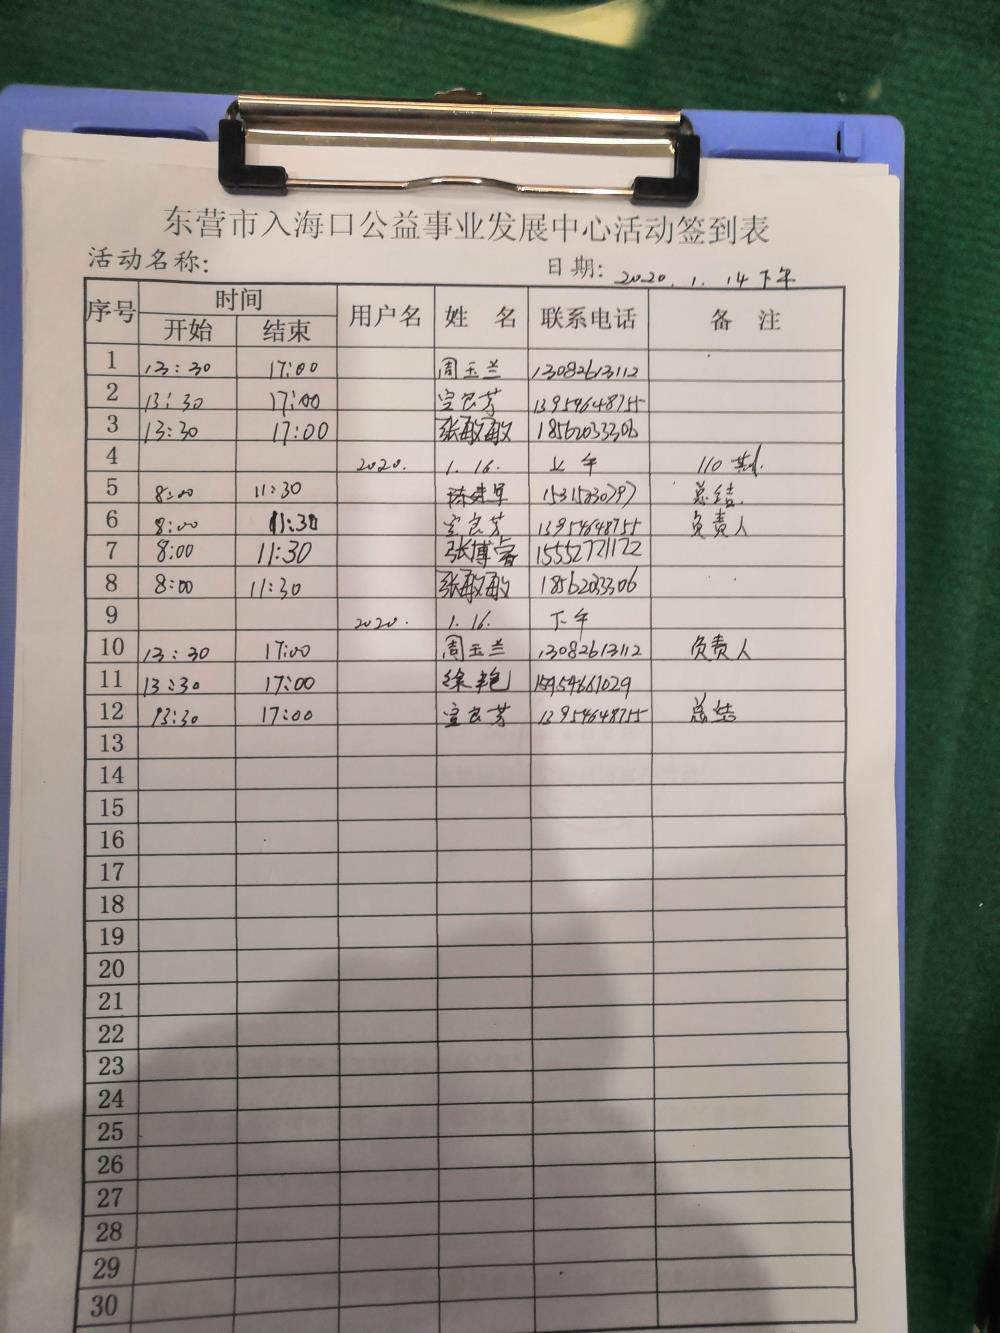 东营市入海口公益事业发展中心活动签到表
活动名称: 日期: 2020.1.14下午
序号 时间 用户名 姓 名 联系电话 备 注
开始 结束
1 13:30 17:00 周玉兰 13082613112
2 13:30 17:00 宫良芳 13954648755
3 13:30 17:00 张敏敏 18562033306
4 2020. 1.16. 上午 110
5 8:00 11:30 总结.
6 8:00 11:30 宫良芳 13954648755 负责人
7 8:00 11:30 张博睿 15552721122
8 8:00 11:30 张敏敏 18562033306
9 2020. 1.16. 下午
10 13:30 17:00 周玉兰 13082613112 负责人
11 13:30 17:00 徐艳
12 13:30 17:00 宫良芳 13954648755 总结
13
14
15
16
17
18
19
20
21
22
23
24
25
26
27
28
29
30